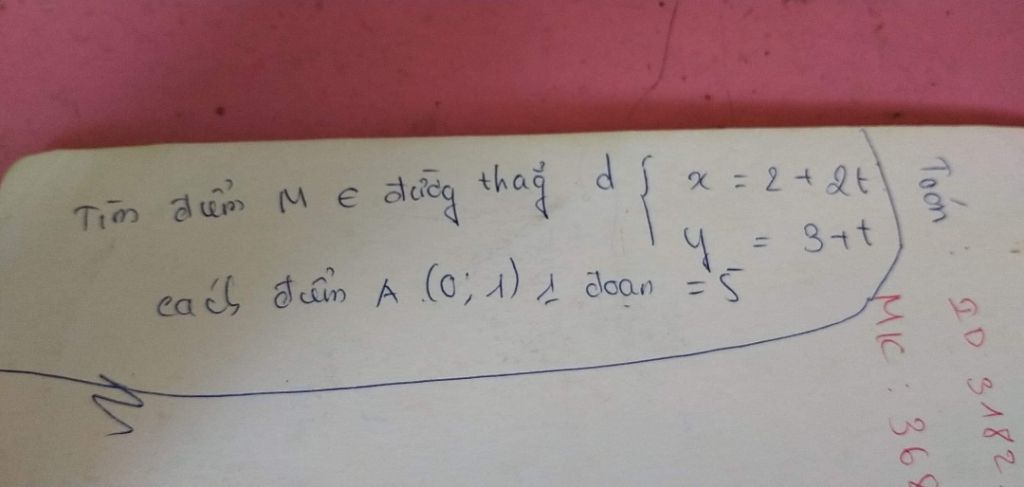 Tìm điểm M ∈ đường thẳg d { x = 2 + 2t
y = 3 + t
cách điểm A (0; 1) 1 đoạn = 5
Toán :
ID 3182
MK : 368